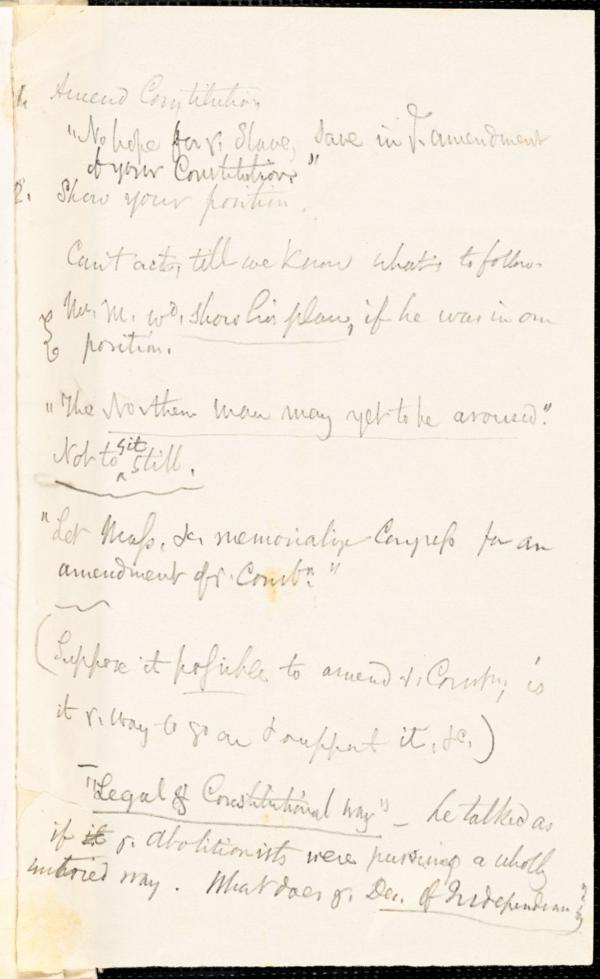 1. Amend Constitution
"No hope for ye. Slave, save in ye. amendment
of your Constitution."
2. Show your position.
Can't act, till we know what's to follow.
Mr. M. wd. show his plan, if he was in our
position.
"The Northern man may yet to be aroused."
Not to sit still.
"Let Mass. &c. memorialize Congress for an
amendment of ye. Constn."
(Suppose it possible to amend ye. Constn, is
it ye. way to go on & support it, &c.)
"Legal & Constitutional way" – he talked as
if it ye. abolitionists were pursuing a wholly
untried way. What does ye. Dec. of Independence